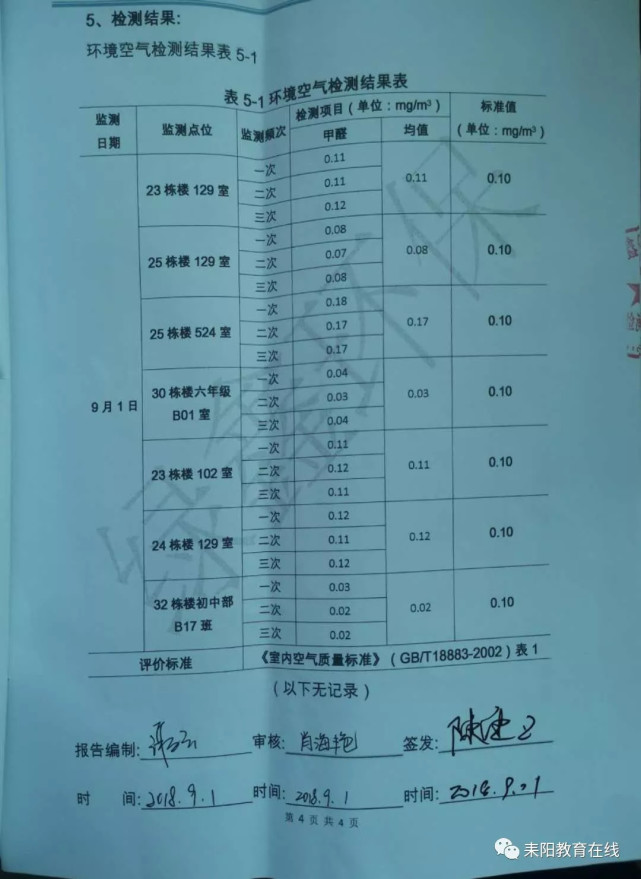 5、检测结果:
环境空气检测结果表 5-1
表 5-1 环境空气检测结果表
监测日期 监测点位 监测频次 检测项目（单位：mg/m³） 标准值（单位：mg/m³）
甲醛 均值
9 月 1 日
23 栋楼 129 室 一次 0.11 0.11 0.10
二次 0.11
三次 0.12
25 栋楼 129 室 一次 0.08 0.08 0.10
二次 0.07
三次 0.08
25 栋楼 524 室 一次 0.18 0.17 0.10
二次 0.17
三次 0.17
30 栋楼六年级 B01 室 一次 0.04 0.03 0.10
二次 0.03
三次 0.04
23 栋楼 102 室 一次 0.11 0.11 0.10
二次 0.12
三次 0.11
24 栋楼 129 室 一次 0.12 0.12 0.10
二次 0.11
三次 0.12
32 栋楼初中部 B17 班 一次 0.03 0.02 0.10
二次 0.02
三次 0.02
评价标准 《室内空气质量标准》（GB/T18883-2002）表 1
（以下无记录）
报告编制: 审核: 肖海艳 签发:
时 间: 2018.9.1 时间: 2018.9.1 时间: 2018.9.01
第 4 页 共 4 页
绿鑫环保
耒阳教育在线